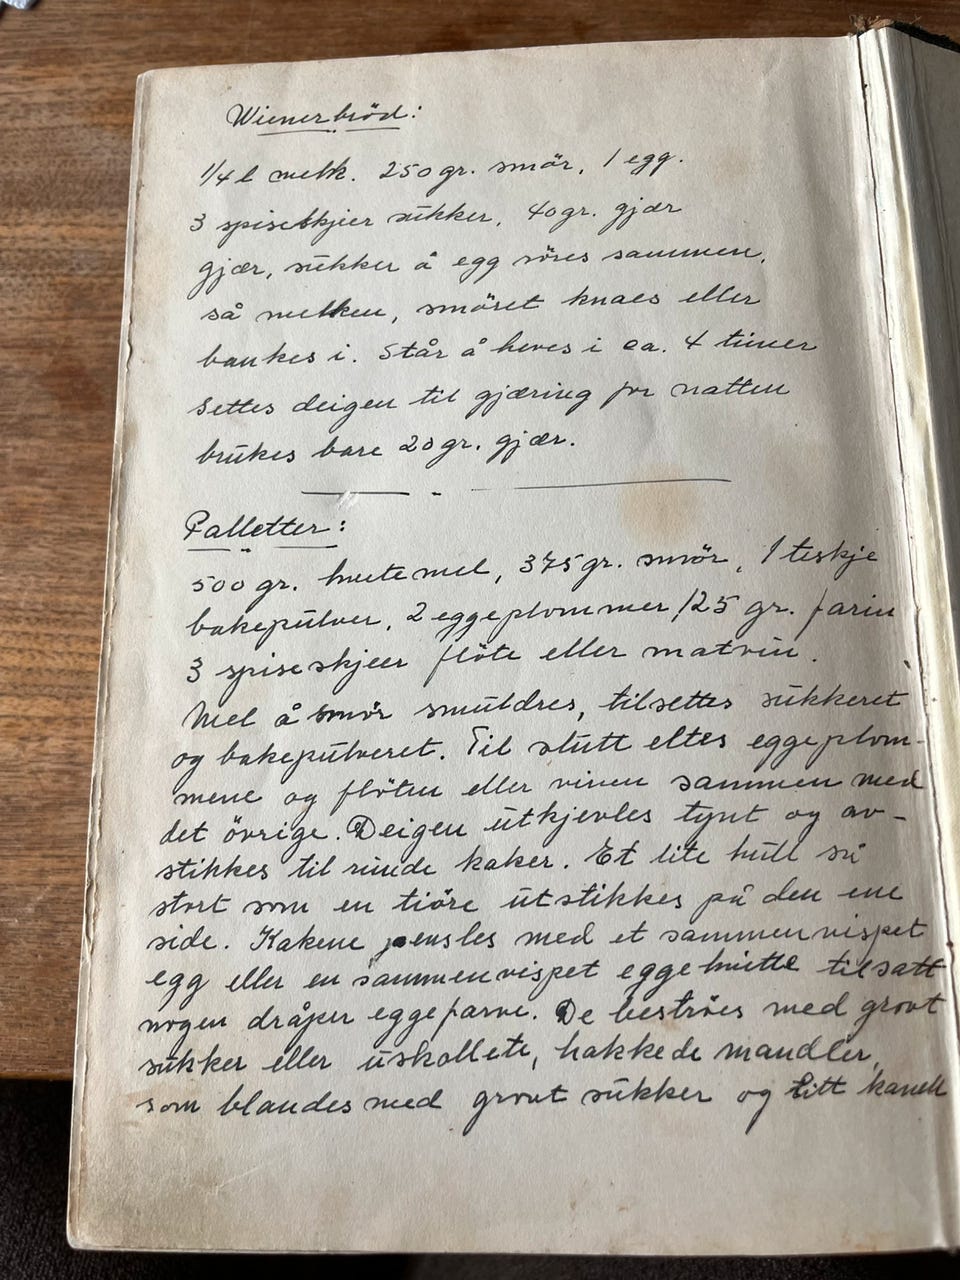 Wienerbröd:
1/4 l melk. 250 gr. smör, 1 egg.
3 spiseskjier sukker, 40 gr. gjær
gjær, sukker å egg röres sammen,
så melken, smöret knaes eller
bankes i. Står å heves i ca. 4 timer
Settes deigen til gjæring for natten
brukes bare 20 gr. gjær.
Palletter:
500 gr. hvetemel, 375 gr. smör, 1 teskje
bakepulver, 2 eggeplommer 125 gr. farin
3 spiseskjeer flöte eller matvin.
Mel å smör smuldres, tilsettes sukkeret
og bakepulveret. Til slutt eltes eggeplom-
mene og flöten eller vinen sammen med
det övrige. Deigen utkjevles tynt og av-
stikkes til runde kaker. Et lite hull så
stort som en tiöre utstikkes på den ene
side. Kakene pensles med et sammenvispet
egg eller en sammenvispet eggehvitte tilsatt
nogen dråper eggefarve. De beströes med grovt
sukker eller uskollete, hakkede mandler,
som blandes med grovt sukker og litt kanell